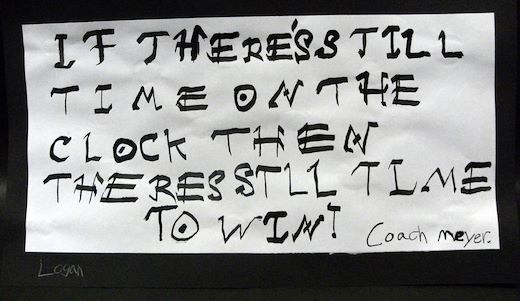 IF THERE'S STILL
TIME ON THE
CLOCK THEN
THERES STLL TIME
TO WIN!
Coach meyer.
Logan